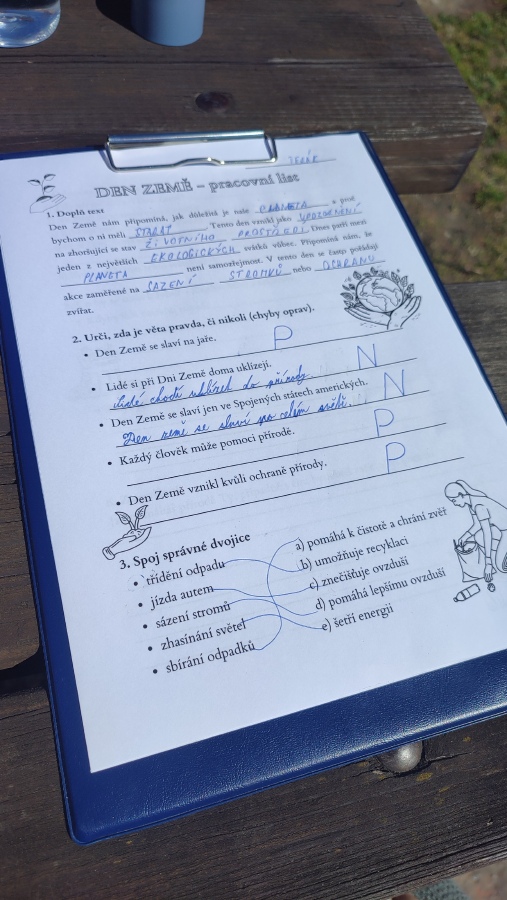 DEN ZEMĚ – pracovní list
1. Doplň text
Den Země nám připomíná, jak důležitá je naše PLANETA a proč
bychom o ni měli STARAT. Tento den vznikl jako UPOZORNĚNÍ
na zhoršující se stav ŽIVOTNÍHO PROSTŘEDÍ. Dnes patří mezi
jeden z největších EKOLOGICKÝCH svátků vůbec. Připomíná nám, že
PLANETA není samozřejmost. V tento den se často pořádají
akce zaměřené na SAZENÍ STROMKŮ nebo OCHRANU
zvířat.
2. Urči, zda je věta pravda, či nikoli (chyby oprav).
• Den Země se slaví na jaře. P
• Lidé si při Dni Země doma uklízejí. N
Lidé chodí uklízet do přírody.
• Den Země se slaví jen ve Spojených státech amerických. N
Den země se slaví po celém světě.
• Každý člověk může pomoci přírodě. P
• Den Země vznikl kvůli ochraně přírody. P
3. Spoj správné dvojice
• třídění odpadu a) pomáhá k čistotě a chrání zvěř
• jízda autem b) umožňuje recyklaci
• sázení stromů c) znečišťuje ovzduší
• zhasínání světel d) pomáhá lepšímu ovzduší
• sbírání odpadků e) šetří energii